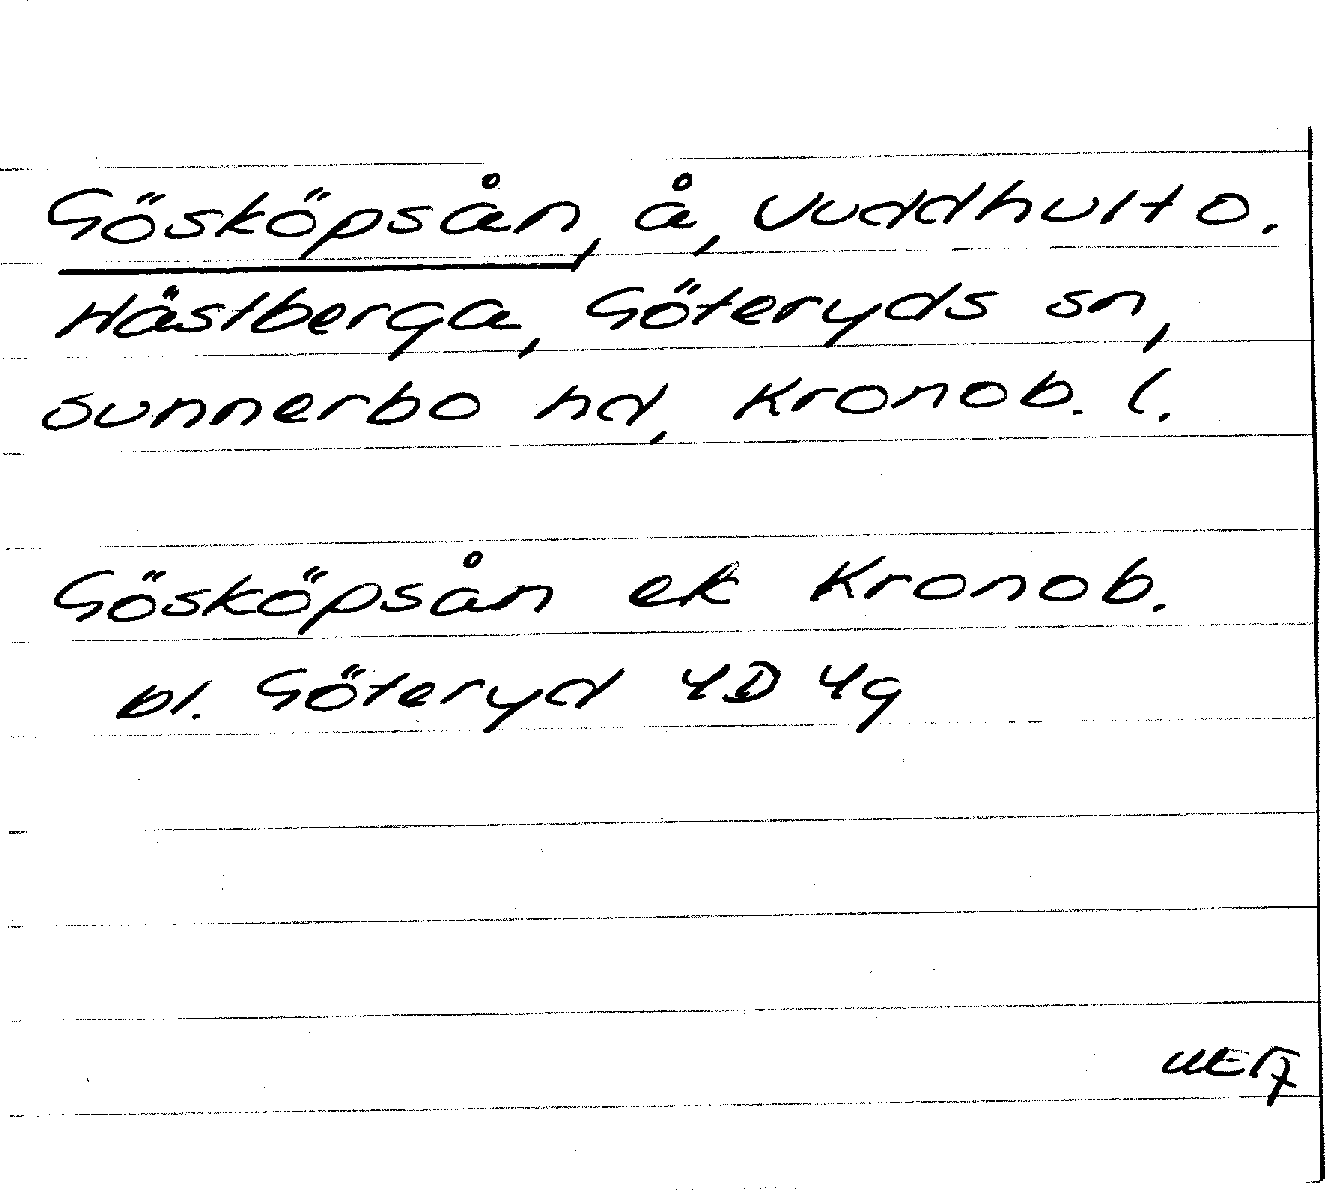 Gösköpsån, å, Vuddhult o.
Hästberga, Göteryds sn,
Sunnerbo hd, Kronob. l.
Gösköpsån ek Kronob.
bl. Göteryd 4D 4g